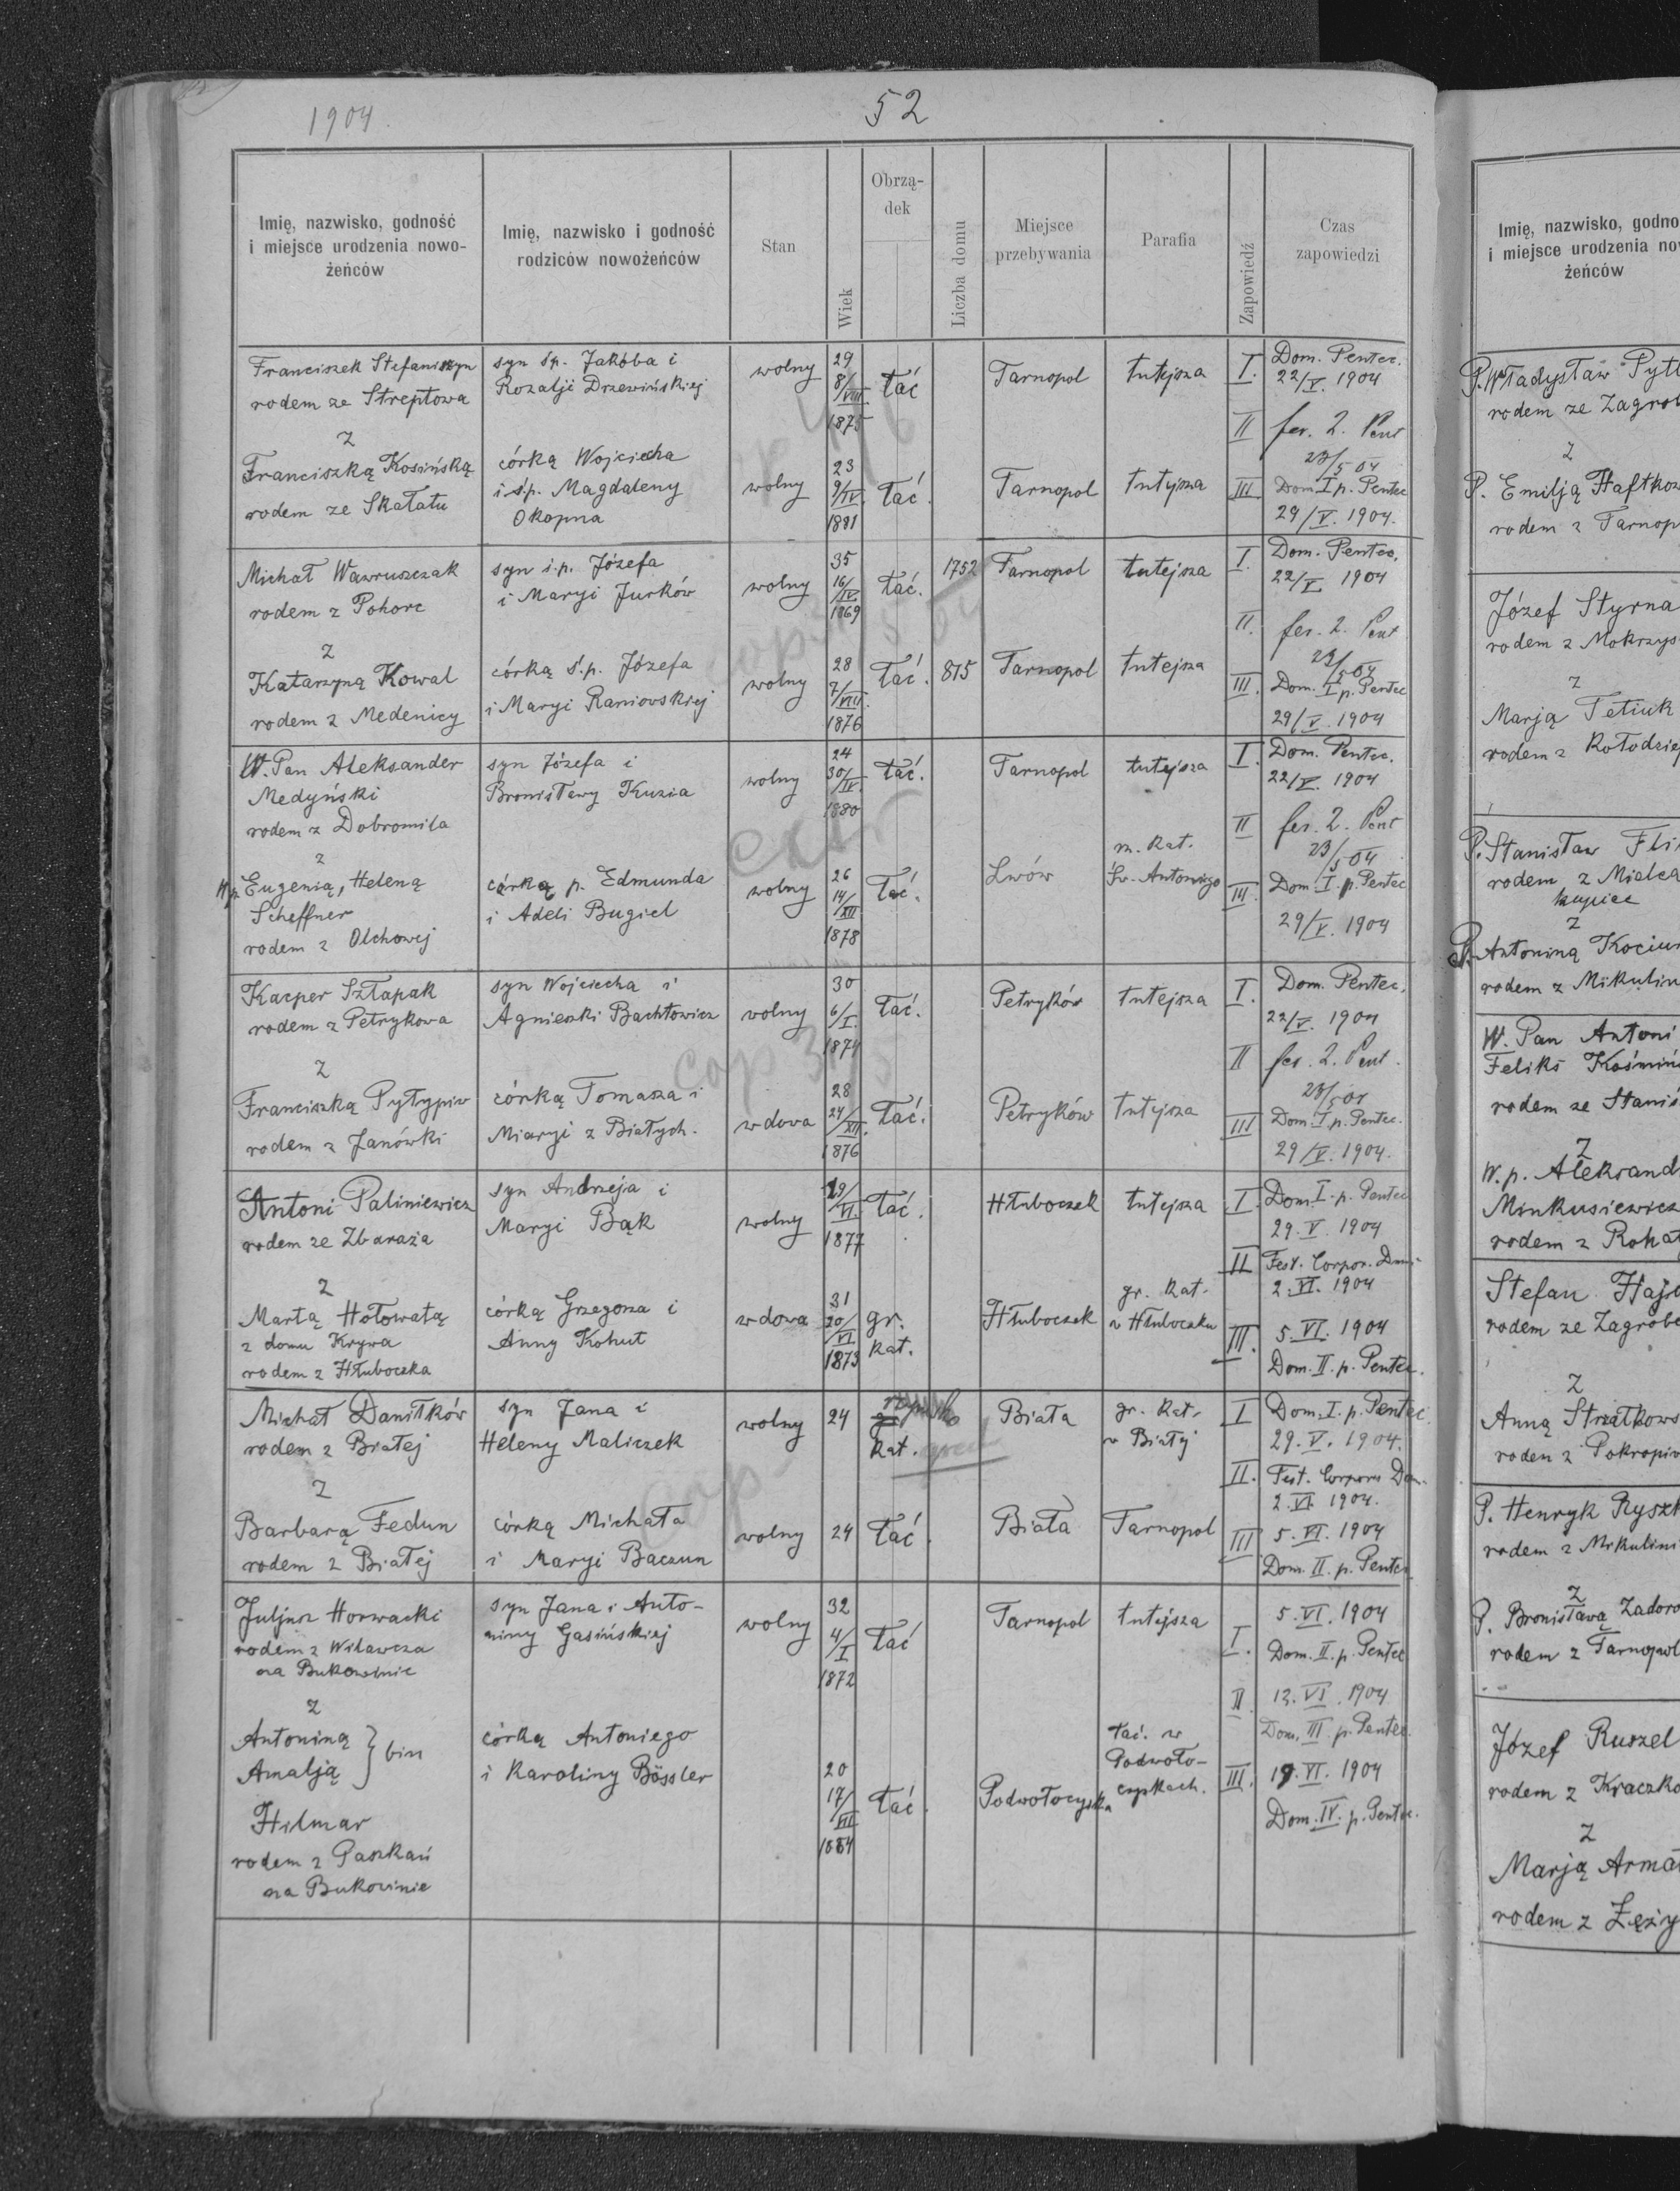 1904
52
Imię, nazwisko, godność
i miejsce urodzenia nowo-
żeńców
Imię, nazwisko i godność
rodziców nowożeńców
Stan
Wiek
Obrzą-
dek
Liczba domu
Miejsce
przebywania
Parafia
Zapowiedź
Czas
zapowiedzi
Franciszek Stefaniszyn
rodem ze Streptowa
z
Franciszką Kosińską
rodem ze Skałatu
syn śp. Jakóba i
Rozalji Drzewińskiej
córką Wojciecha
i ś.p. Magdaleny
Okopna
wolny
wolny
29
8/VIII
1875
23
9/IV.
1881
łać
łać.
Tarnopol
Tarnopol
tutejsza
tutejsza
I. Dom. Pentec.
22/V. 1904
II fer. 2. Pent
23/5 04
III Dom I p. Pentec
29/V. 1904.
Michał Wawruszczak
rodem z Pohorc
z
Katarzyną Kowal
rodem z Medenicy
syn ś.p. Józefa
i Maryi Jurków
córką ś.p. Józefa
i Maryi Raniovskiej
wolny
wolny
35
16/IV.
1869
28
7/VIII.
1876
łać.
łać.
1752
815
Tarnopol
Tarnopol
tutejsza
tutejsza
I. Dom. Pentec.
22/V 1904
II. fer. 2. Pent
23/5 04
III. Dom. I p. Pentec
29/V. 1904
W. Pan Aleksander
Medyński
rodem z Dobromila
z
W.p. Eugenią, Heleną
Scheffner
rodem z Olchowej
syn Józefa i
Bronisławy Kuzia
córką p. Edmunda
i Adeli Bugiel
wolny
wolny
24
30/IV.
1880
26
14/XII
1878
łać.
łać.
Tarnopol
Lwów
tutejsza
m. kat.
Św. Antoniego
I. Dom. Pentec.
22/V. 1904
II fer. 2. Pent
23/5 04
III Dom. I. p. Pentec
29/V. 1904
Kacper Sztapak
rodem z Petrykowa
z
Franciszką Pyłypiw
rodem z Janówki
syn Wojciecha i
Agnieszki Bachłowicz
córką Tomasza i
Maryi z Białych.
wolny
wdowa
30
6/I.
1874
28
24/XII.
1876
łać.
łać.
cop
Petryków
Petryków
tutejsza
tutejsza
I. Dom. Pentec.
22/V. 1904
II fer. 2. Pent.
23/5 04
III Dom. I p. Pentec.
29/V. 1904.
Antoni Paliniewicz
rodem ze Zbaraża
z
Martą Hołowatą
z domu Krywa
rodem z Hłuboczka
syn Andrzeja i
Maryi Bąk
córką Grzegorza i
Anny Kohut
wolny
wdowa
19/VI.
1877
31
20/VI
1873
łać.
gr.
kat.
Hłuboczek
Hłuboczek
tutejsza
gr. kat.
w Hłuboczku
I. Dom. I. p. Pentec
29. V. 1904
II Fest. Corpor. Dmi
2. VI. 1904
III. 5. VI. 1904
Dom. II. p. Pentec.
Michał Daniłków
rodem z Białej
z
Barbarą Fedun
rodem z Białej
syn Jana i
Heleny Maliczek
córką Michała
i Maryi Baczun
wolny
wolny
24
24
gr. rzymsko
kat.
łać.
cop
Biała
Biała
gr. kat.
w Białej
Tarnopol
I Dom. I. p. Pentec.
29. V. 1904.
II. Fest. Corporis Dom.
2. VI. 1904.
III 5. VI. 1904
Dom. II. p. Pentec.
Juljusz Horwacki
rodem z Wilawcza
na Bukowinie
z
Antoniną
Amalją } bin
Hilmar
rodem z Paszkań
na Bukowinie
syn Jana i Anto-
niny Gasińskiej
córką Antoniego
i Karoliny Bössler
wolny
32
4/I
1872
20
17/VII
1884
łać
łać.
Tarnopol
Podwołoczyska
tutejsza
łać. w
Podwoło-
czyskach.
I. 5. VI. 1904
Dom. II. p. Pentec
II 12. VI. 1904
Dom. III p. Pentec.
III. 19. VI. 1904
Dom. IV. p. Pentec.
Imię, nazwisko, godno
i miejsce urodzenia now
żeńców
P. Władysław Pytl
rodem ze Zagrob
z
P. Emilją Haftkow
rodem z Tarnop
Józef Styrna
rodem z Mokrzys
z
Marją Tetiuk
rodem z Kołodziej
P. Stanisław Fli
rodem z Mielca
kupiec
z
P. Antoniną Kociu
rodem z Mikulin
W. Pan Antoni
Feliks Koźmiń
rodem ze Stanis
z
W.p. Aleksand
Minkusiewicz
rodem z Rohat
Stefan Hajd
rodem ze Zagrobe
z
Anną Strzałkows
rodem z Pokropiw
P. Henryk Ryszk
rodem z Mikulini
z
P. Bronisławą Zadoro
rodem z Tarnopol
Józef Ruszel
rodem z Kraczko
z
Marją Arma
rodem z Łęży